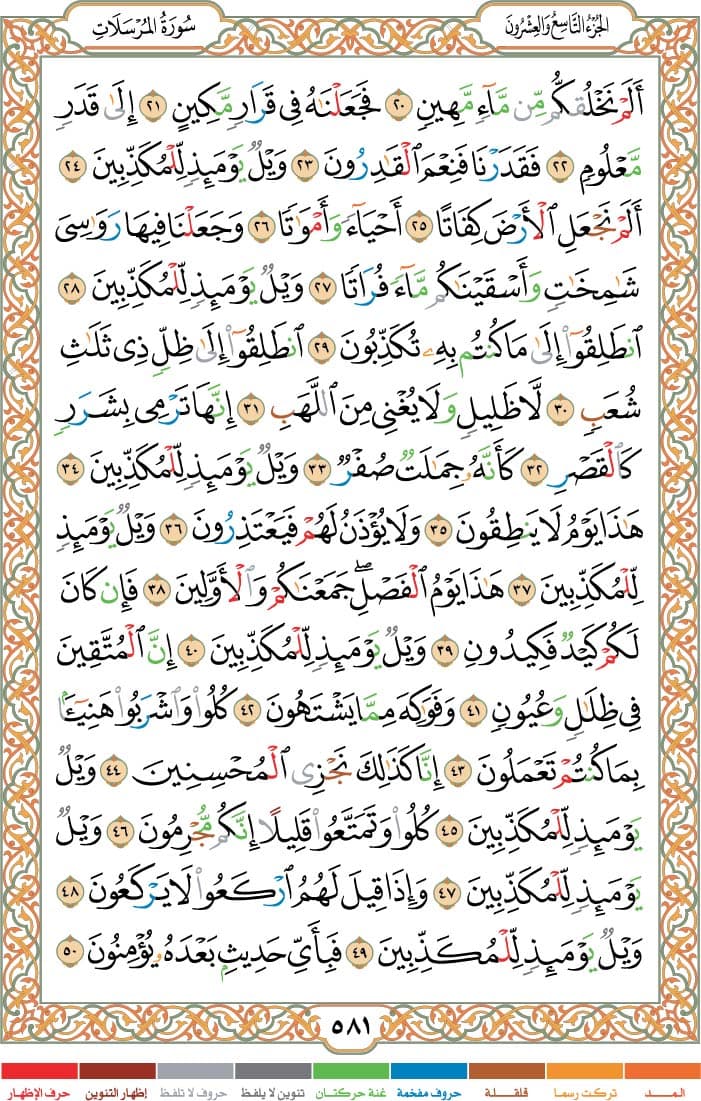 الجُزْءُ التَّاسِعُ وَالعِشْرُونَ
سُورَةُ المُرْسَلَاتِ
أَلَمْ نَخْلُقكُّم مِّن مَّآءٍ مَّهِينٍ ٢٠ فَجَعَلْنَٰهُ فِى قَرَارٍ مَّكِينٍ ٢١ إِلَىٰ قَدَرٍ
مَّعْلُومٍ ٢٢ فَقَدَرْنَا فَنِعْمَ ٱلْقَٰدِرُونَ ٢٣ وَيْلٌ يَوْمَئِذٍ لِّلْمُكَذِّبِينَ ٢٤
أَلَمْ نَجْعَلِ ٱلْأَرْضَ كِفَاتًا ٢٥ أَحْيَآءً وَأَمْوَٰتًا ٢٦ وَجَعَلْنَا فِيهَا رَوَٰسِىَ
شَٰمِخَٰتٍ وَأَسْقَيْنَٰكُم مَّآءً فُرَاتًا ٢٧ وَيْلٌ يَوْمَئِذٍ لِّلْمُكَذِّبِينَ ٢٨
ٱنطَلِقُوٓا۟ إِلَىٰ مَا كُنتُم بِهِۦ تُكَذِّبُونَ ٢٩ ٱنطَلِقُوٓا۟ إِلَىٰ ظِلٍّ ذِى ثَلَٰثِ
شُعَبٍ ٣٠ لَّا ظَلِيلٍ وَلَا يُغْنِى مِنَ ٱللَّهَبِ ٣١ إِنَّهَا تَرْمِى بِشَرَرٍ
كَٱلْقَصْرِ ٣٢ كَأَنَّهُۥ جِمَٰلَتٌ صُفْرٌ ٣٣ وَيْلٌ يَوْمَئِذٍ لِّلْمُكَذِّبِينَ ٣٤
هَٰذَا يَوْمُ لَا يَنطِقُونَ ٣٥ وَلَا يُؤْذَنُ لَهُمْ فَيَعْتَذِرُونَ ٣٦ وَيْلٌ يَوْمَئِذٍ
لِّلْمُكَذِّبِينَ ٣٧ هَٰذَا يَوْمُ ٱلْفَصْلِ ۖ جَمَعْنَٰكُمْ وَٱلْأَوَّلِينَ ٣٨ فَإِن كَانَ
لَكُمْ كَيْدٌ فَكِيدُونِ ٣٩ وَيْلٌ يَوْمَئِذٍ لِّلْمُكَذِّبِينَ ٤٠ إِنَّ ٱلْمُتَّقِينَ
فِى ظِلَٰلٍ وَعُيُونٍ ٤١ وَفَوَٰكِهَ مِمَّا يَشْتَهُونَ ٤٢ كُلُوا۟ وَٱشْرَبُوا۟ هَنِيٓـًٔۢا
بِمَا كُنتُمْ تَعْمَلُونَ ٤٣ إِنَّا كَذَٰلِكَ نَجْزِى ٱلْمُحْسِنِينَ ٤٤ وَيْلٌ
يَوْمَئِذٍ لِّلْمُكَذِّبِينَ ٤٥ كُلُوا۟ وَتَمَتَّعُوا۟ قَلِيلًا إِنَّكُم مُّجْرِمُونَ ٤٦ وَيْلٌ
يَوْمَئِذٍ لِّلْمُكَذِّبِينَ ٤٧ وَإِذَا قِيلَ لَهُمُ ٱرْكَعُوا۟ لَا يَرْكَعُونَ ٤٨
وَيْلٌ يَوْمَئِذٍ لِّلْمُكَذِّبِينَ ٤٩ فَبِأَىِّ حَدِيثٍۭ بَعْدَهُۥ يُؤْمِنُونَ ٥٠
٥٨١
المـــد تركت رسما قلقـلة حروف مفخمة غنة حركتـان تنوين لا يلفظ حروف لا تلفظ إظهار التنوين حرف الإظهار